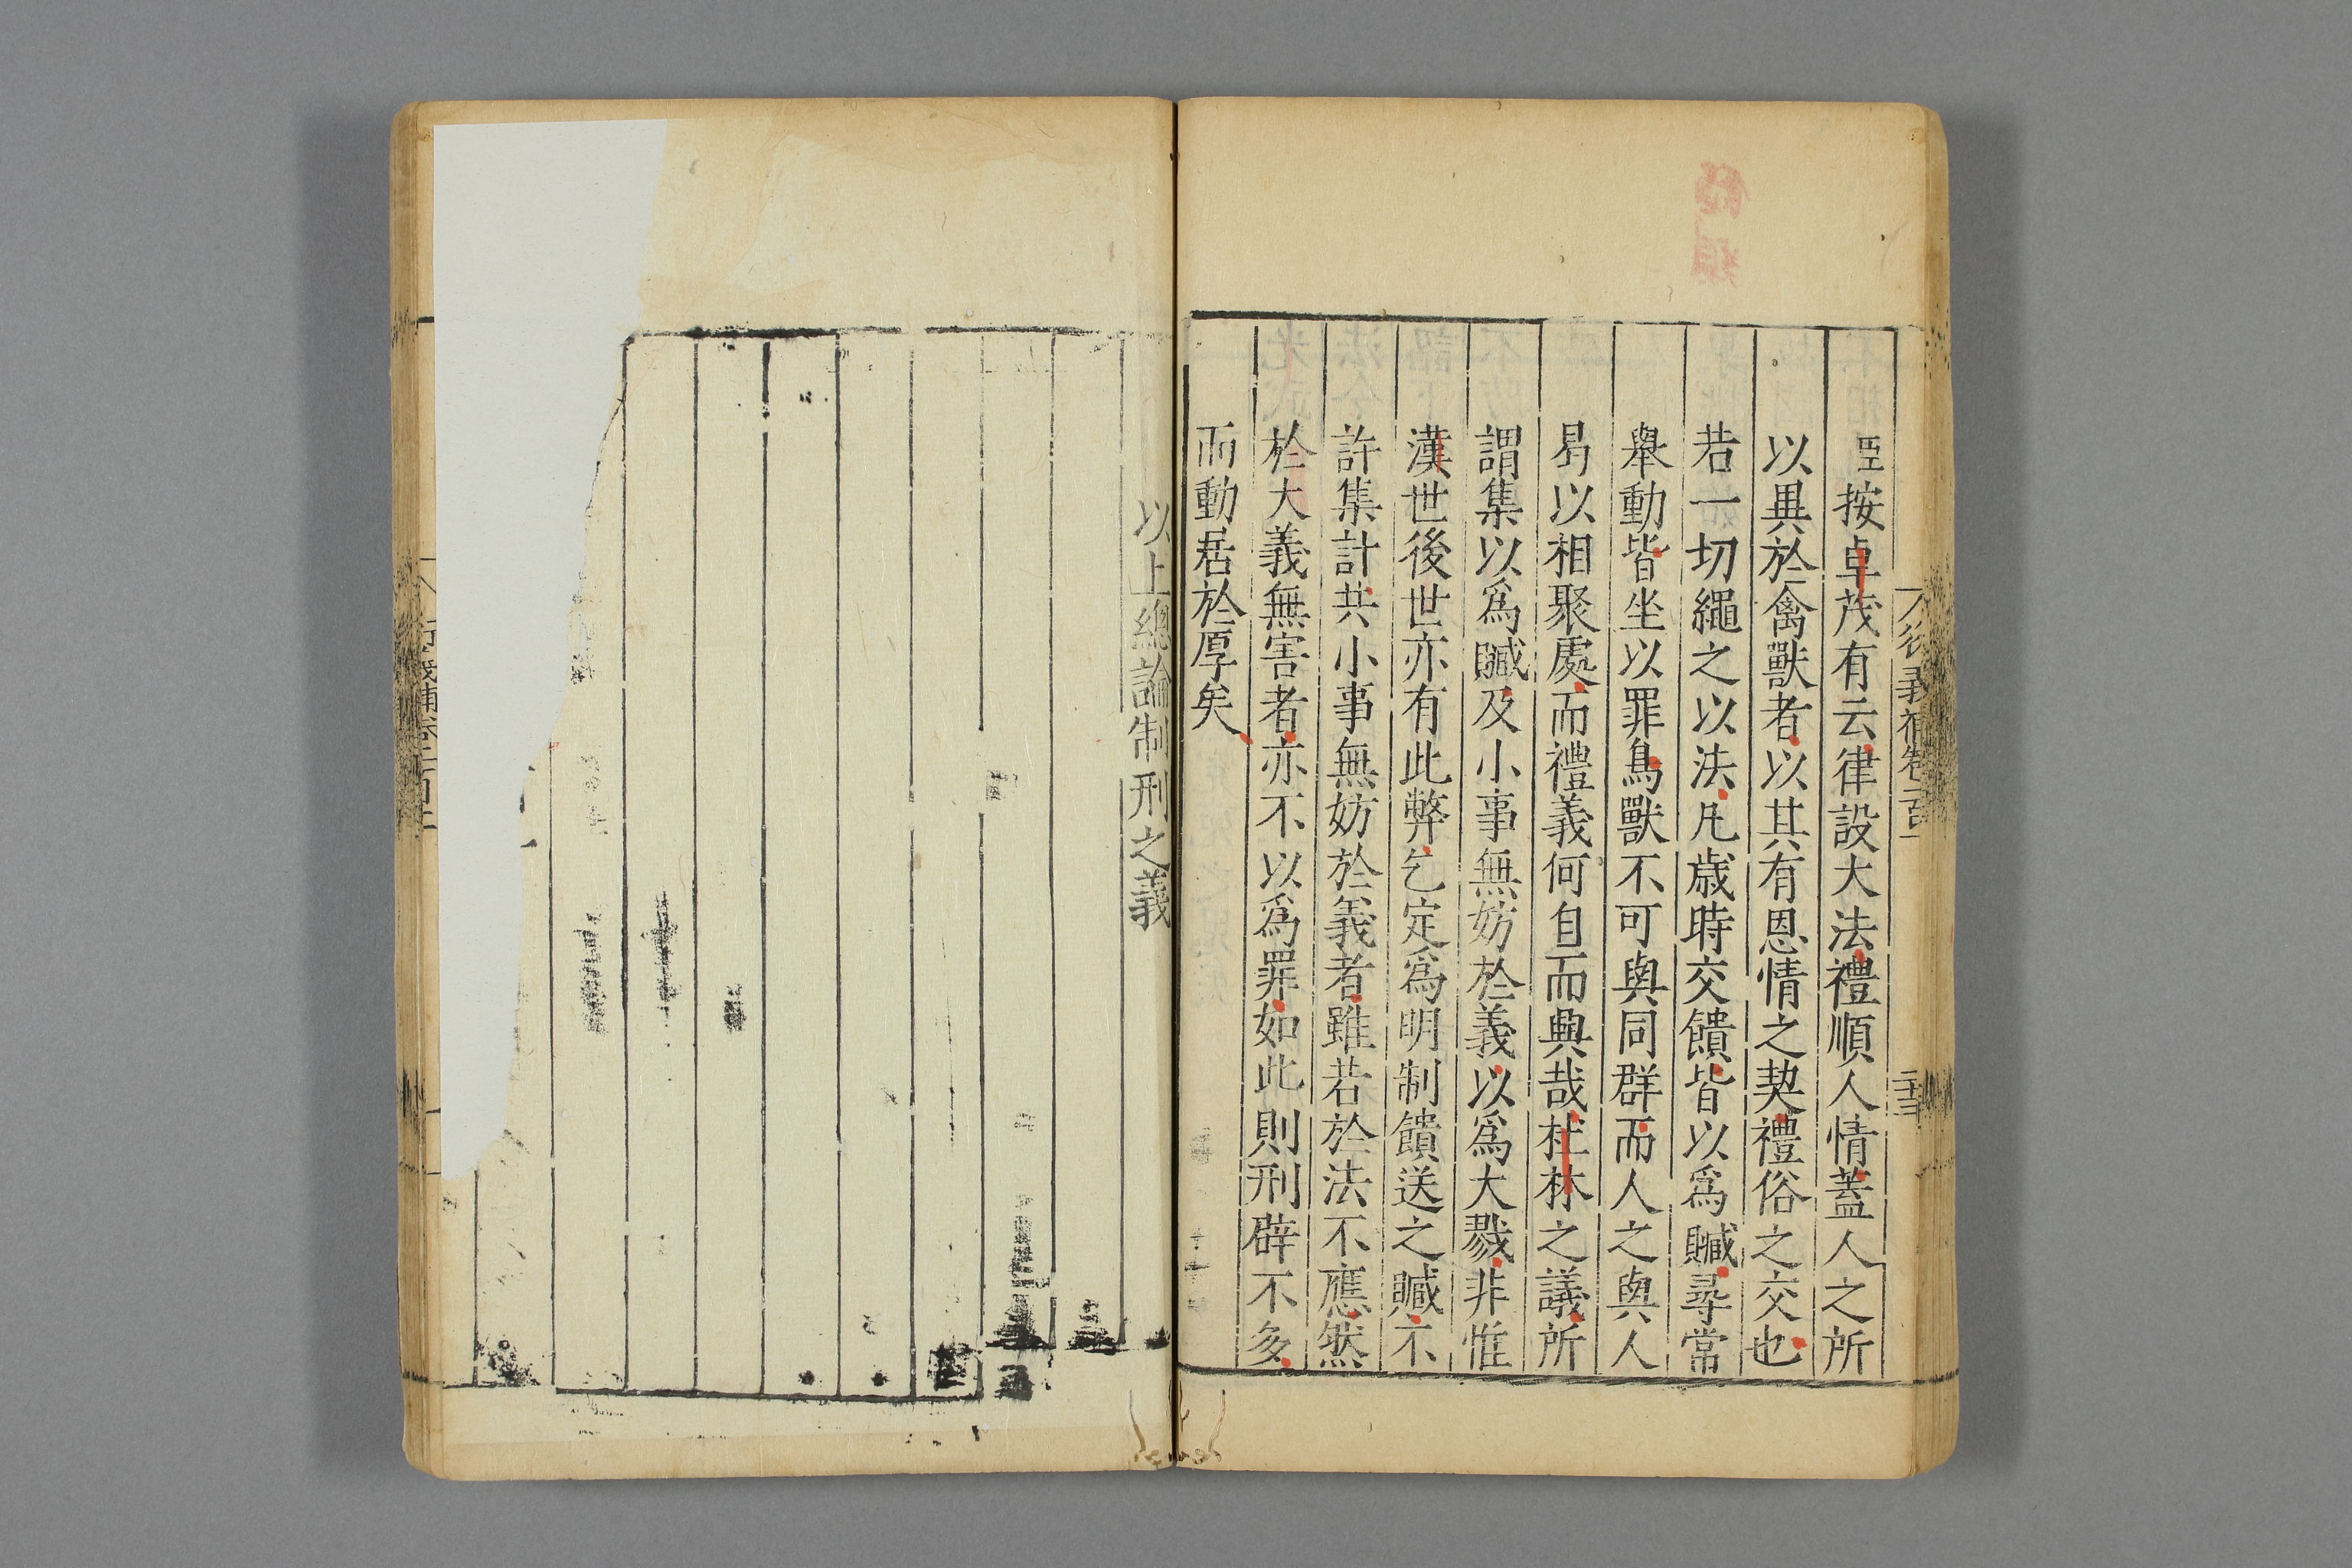 臣按卓茂有云律設大法禮順人情蓋人之所
以異於禽獸者以其有恩情之契禮俗之交也
若一切繩之以法凡歲時交饋皆以爲贓尋常
舉動皆坐以罪鳥獸不可與同群而人之與人
易以相聚處而禮義何自而興哉杜林之議所
謂集以爲贓及小事無妨於義以爲大戮非惟
漢世後世亦有此弊乞定爲明制饋送之贓不
許集計其小事無妨於義者雖若於法不應然
於大義無害者亦不以爲罪如此則刑辟不多
而動居於厚矣
以上總論制刑之義